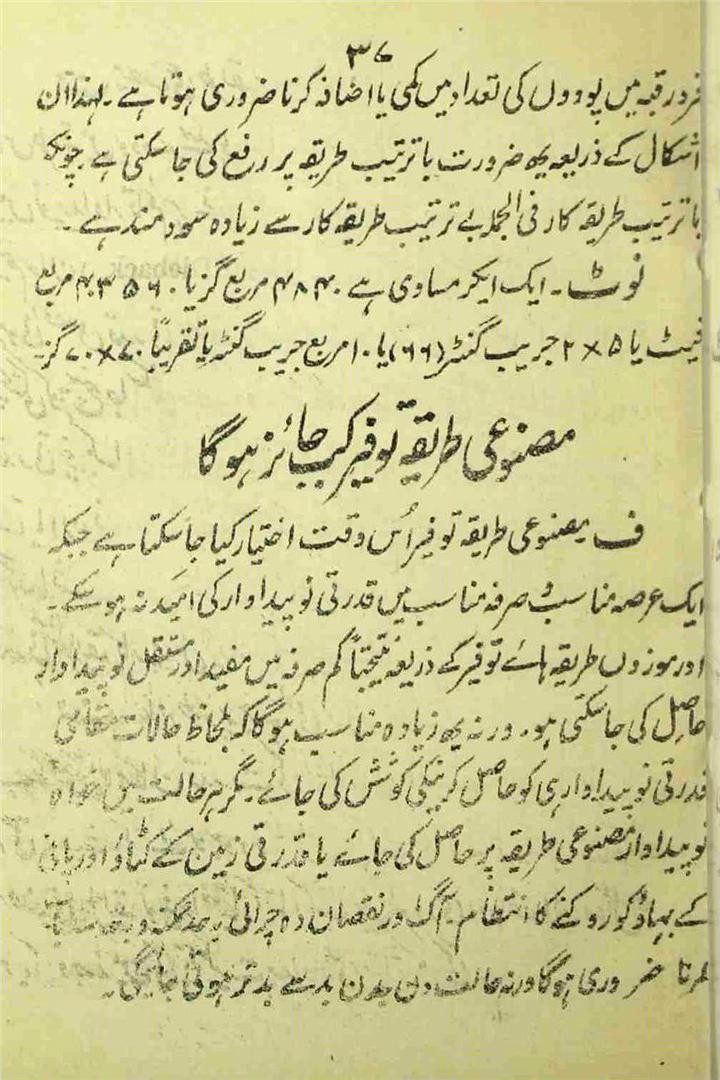 ۳۷
فرد رقبہ میں پودوں کی تعداد میں کمی یا اضافہ کرنا ضروری ہوتا ہے۔ لہذا ان
اشکال کے ذریعہ یہ ضرورت با ترتیب طریقہ پر رفع کی جا سکتی ہے چونکہ
با ترتیب طریقہ کار فی الجملہ بے ترتیب طریقہ کار سے زیادہ سود مند ہے۔
نوٹ۔ ایک ایکر مساوی ہے ۴۸۴۰ مربع گز یا ۴۳۵۶۰ مربع
فیٹ یا ۵×۲ جریب گنٹر (۶۶) یا ۱۰ مربع جریب گنٹر یا تقریباً ۷۰×۷۰ گز۔
مصنوعی طریقہ توفیر کب جائز ہوگا
ف مصنوعی طریقہ توفیر اُس وقت اختیار کیا جا سکتا ہے جبکہ
ایک عرصہ مناسب و صرفہ مناسب میں قدرتی نو پیداوار کی امید نہ ہو سکے۔
اور موزوں طریقہ ہائے توفیر کے ذریعہ نتیجتاً کم صرفہ میں مفید اور مستقل نو پیداوار
حاصل کی جا سکتی ہو۔ ورنہ یہ زیادہ مناسب ہوگا کہ بلحاظ حالات مقامی
قدرتی نو پیداوار ہی کو حاصل کرنیکی کوشش کی جائے۔ مگر ہر حالت میں خواہ
نو پیداوار مصنوعی طریقہ پر حاصل کی جائے یا قدرتی زمین کے کٹاؤ اور پانی
کے بہاؤ کو روکنے کا انتظام۔ آگ اور نقصان دہ چرائی
کرنا ضروری ہوگا ورنہ حالت دن بدن بد سے بدتر ہوتی جائیگی۔